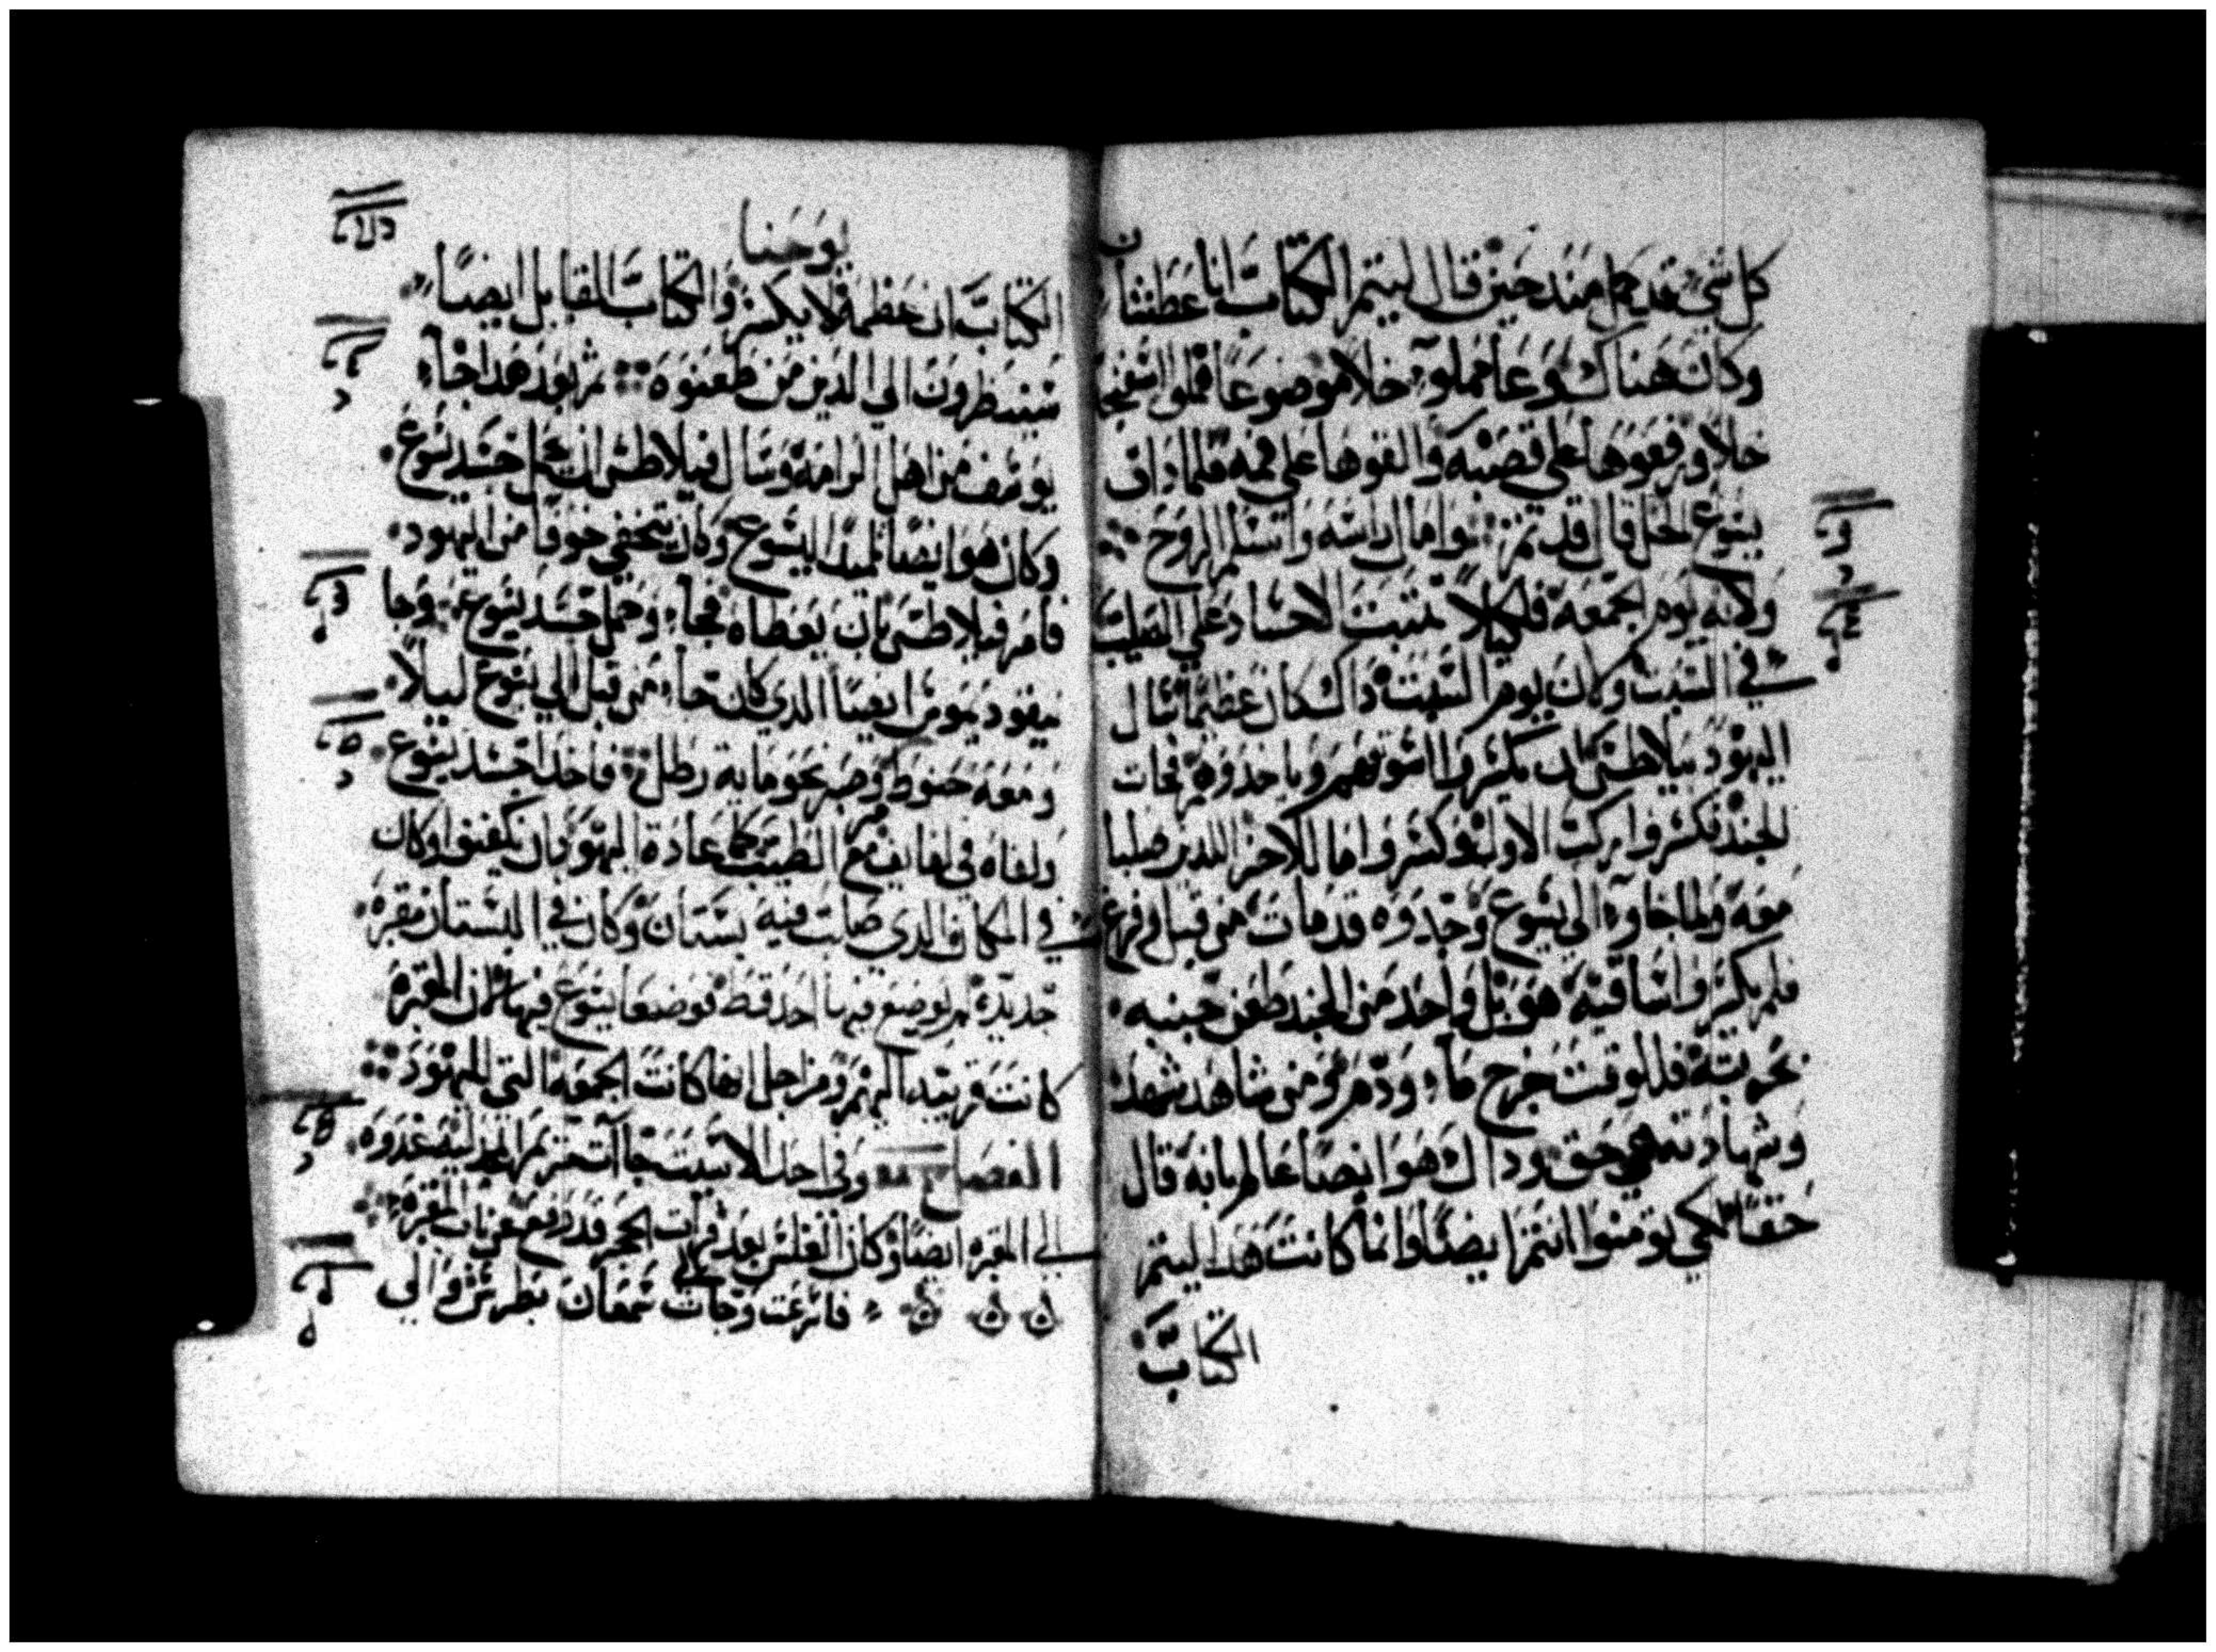 كل شي قد كمل منذ حين قال ليتم الكتاب انا عطشان
وكان هناك وعا مملوء خلا موضوعا فملوا اسفنجة
خلا ورفعوها على قصبه والقوها على فمه فلما داق
يسوع الخل قال قد تم وامال راسه واسلم الروح
ولانه يوم الجمعه فلكيلا تتبت الاجساد على الصليب
في السبت وكان يوم السبت داك كان عظيما سال
اليهود بيلاطس ان يكسروا اسوقهم وياخدوهم فجات
الجند فكسروا ركب الاول وكسروا اما للاخر اللدين صلبا
معه ولما جاوء الي يسوع وجدوه قد مات من قبل وفرغ
فلم يكسروا ساقيه هو بل واحد من الجند طعن جنبه
بحربته فللوقت خرج ماء ودم ومن شاهد شهد
وشهادته هي حق وداك هو ايضا عالم بانه قال
حقا لكي تومنوا انتم ايضا وانما كانت هدا ليتم
الكتاب
يوحنا
الكتاب ان عظمه لا يكسر والكتاب القايل ايضا
سينظرون الي الدين من طعنوه ثم بعد هدا جاء
يوسف من اهل الرامه وسال فيلاطس ان يحمل جسد يسوع
وكان هو ايضا تلميدا ليسوع وكان يتخفي خوفا من اليهود
فامر فيلاطس بان يعطاه فجاء وحمل جسد يسوع وجا
نيقوديموس ايضا الدي كان جاء من قبل الي يسوع ليلا
ومعه حنوط وصبر نحو مايه رطل فاخدا جسد يسوع
ولفاه في لفايف مع الطيب كما عادة اليهود بان يكفنوا وكان
في المكان الدي صلب فيه بستان وكان في البستان مقبره
جديده لم يوضع فيها احد قط فوضعا يسوع فيها لان المقبره
كانت قريبه اليهم ومن اجل انها كانت الجمعه التي لليهود
الفصل وفي احد السبت جاات مريم المجدليه غدوه
الي المقبره ايضا وكان الغلس بعد فرات الحجر قد رفع عن باب المقبره
فاسرعت وجات الي سمعان بطرس والي